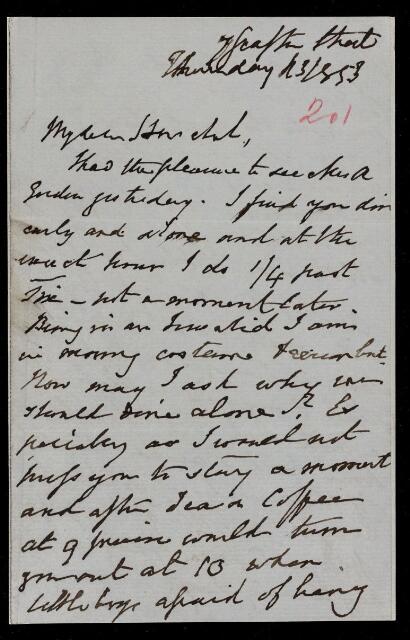 7 Grafton Street
Thursday 13/1853
201
My dear Herschel,
I had the pleasure to see Mrs A
Gordon yesterday. I find you dine
early and alone and at the
exact hour I do 1/4 past
Six - not a moment later.
Being in an Invalid I am
in morng costume
Now may I ask why we
should dine alone? Es
pecially as I would not
press you to stay a moment
and after Tea or Coffee
at 9 precise would turn
you out at 10 when
little boys afraid of having